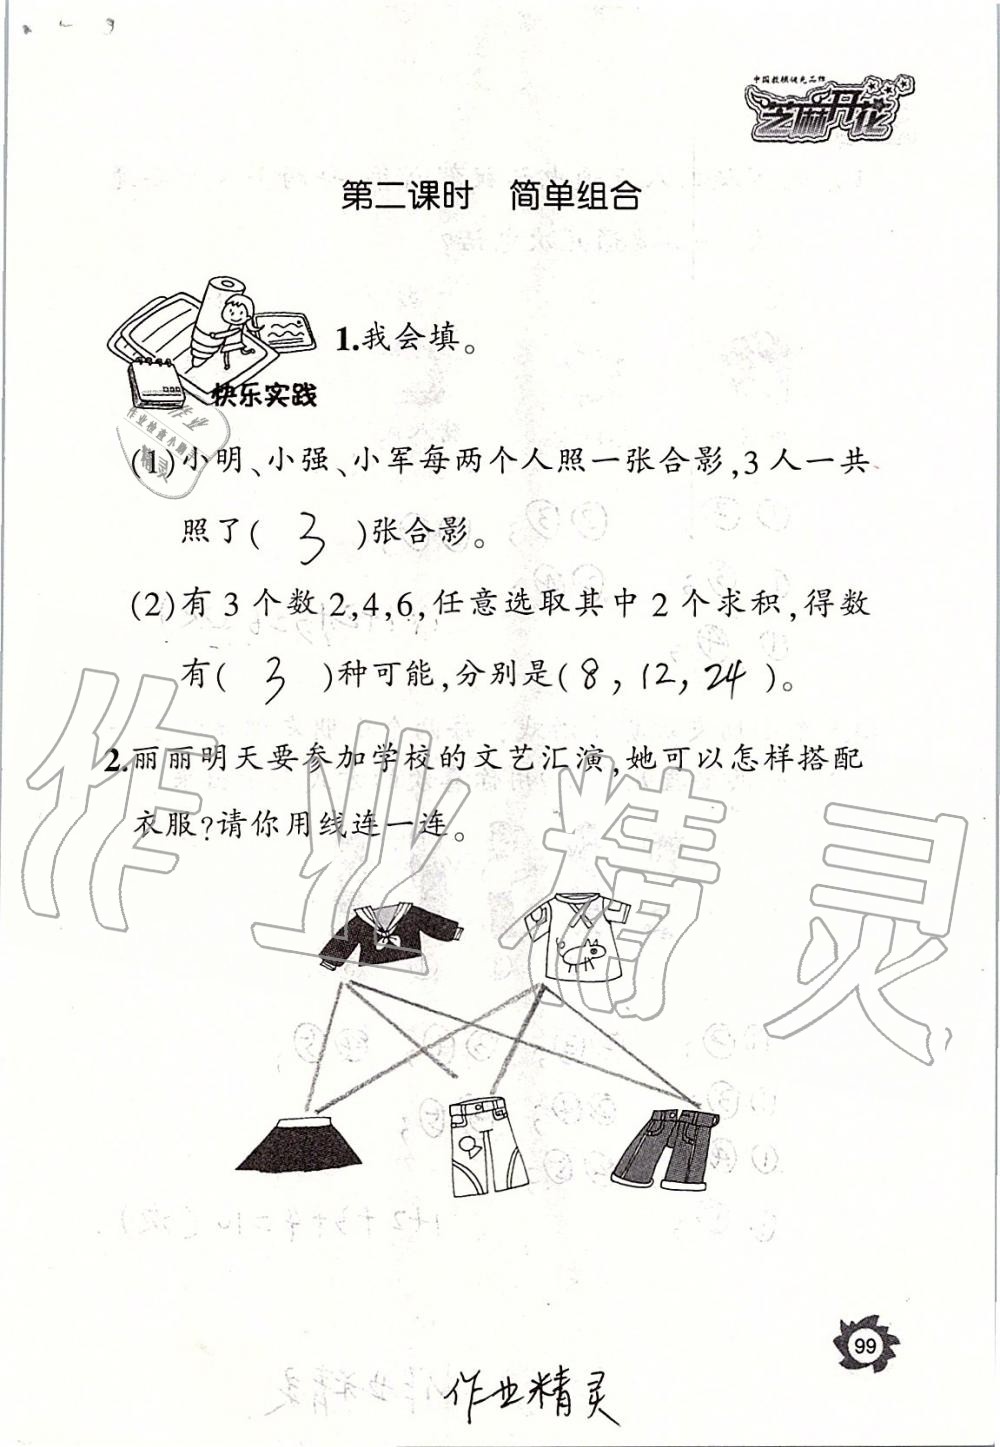 中国教辅领先品牌
芝麻开花
第二课时 简单组合
1.我会填。
快乐实践
(1)小明、小强、小军每两个人照一张合影,3人一共
照了( 3 )张合影。
(2)有3个数2,4,6,任意选取其中2个求积,得数
有( 3 )种可能,分别是( 8, 12, 24 )。
2.丽丽明天要参加学校的文艺汇演,她可以怎样搭配
衣服?请你用线连一连。
作业精灵
99
作业精灵